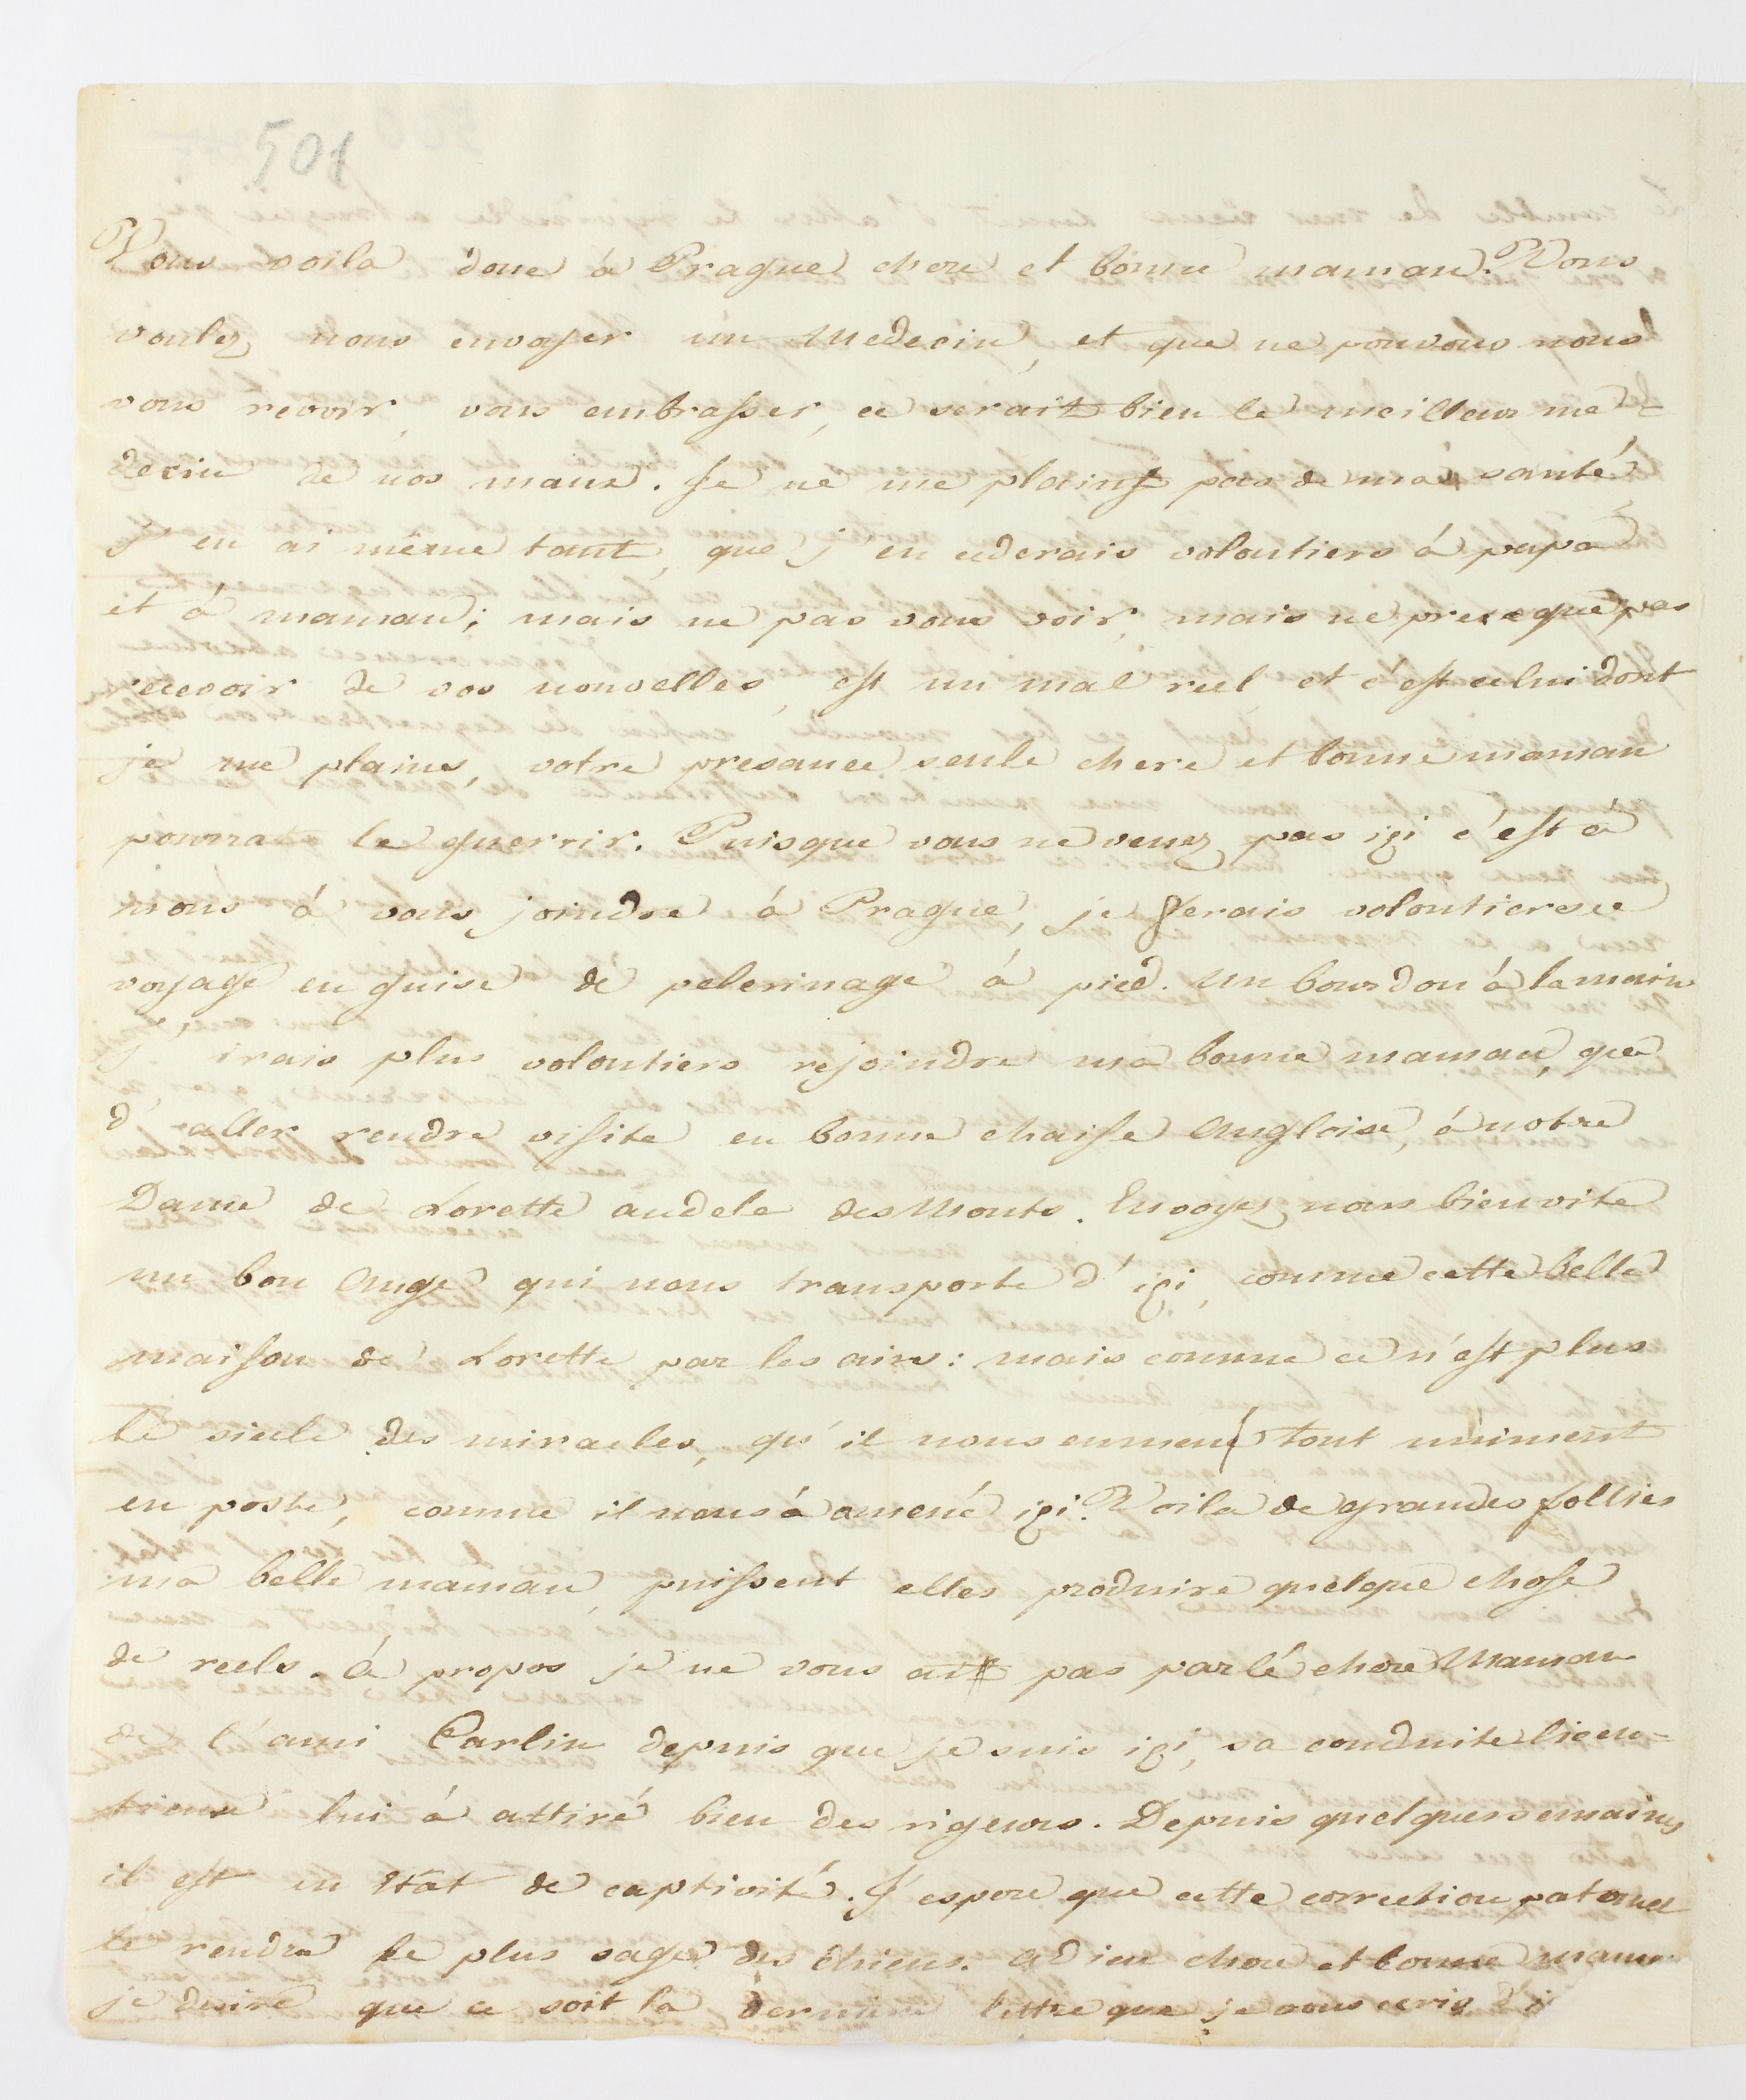 501
Vous voila donc á Prague chere et bonne maman. Vous
voulez nous envoyer un Medecin, et que ne pouvons nous
vous revoir, vous embrasser, ce serait bien le meilleur me=
decin de nos maux. Je ne me plains pas de ma santé
J'en ai même tant, que j'en cederais volontiers á papa
et á maman; mais ne pas vous voir, mais ne presque pas
recevoir de vos nouvelles, est un mal reel et c'est celui dont
je me plains, votre presance seule chere et bonne maman
pourra le guerrir. Puisque vous ne venez pas içi c'est á
nous á vous joindre á Prague, je ferais volontiers ce
voyage en guise de pelerinage á pied. Un bourdon á la main
J'irais plus volontiers rejoindre ma bonne maman, que
d'aller rendre visite en bonne chaise Angloise, á notre
Dame de Lorette audela des Monts. Envoyez nous bien vite
un bon Ange qui nous transporte d'içi, comme cette belle
maison de Lorette par les airs: mais comme ce n'est plus
le siecle des miracles, qu'il nous enmene tout uniment
en poste, comme il nous á amené içi. Voila de grandes follies
ma belle maman, puissent elles produire quelque chose
de reels. á propos je ne vous ai pas parlé chere Maman
de l'ami Carlin depuis que je suis içi, sa conduite licen=
tieuse lui á attiré bien des rigeurs. Depuis quelques semaines
il est en Etât de captivité. J'espere que cette correction paternel
le rendra le plus sage des Chiens. Adieu chere et bonne maman
je desire que ce soit la derniere lettre que je vous ecris d'i